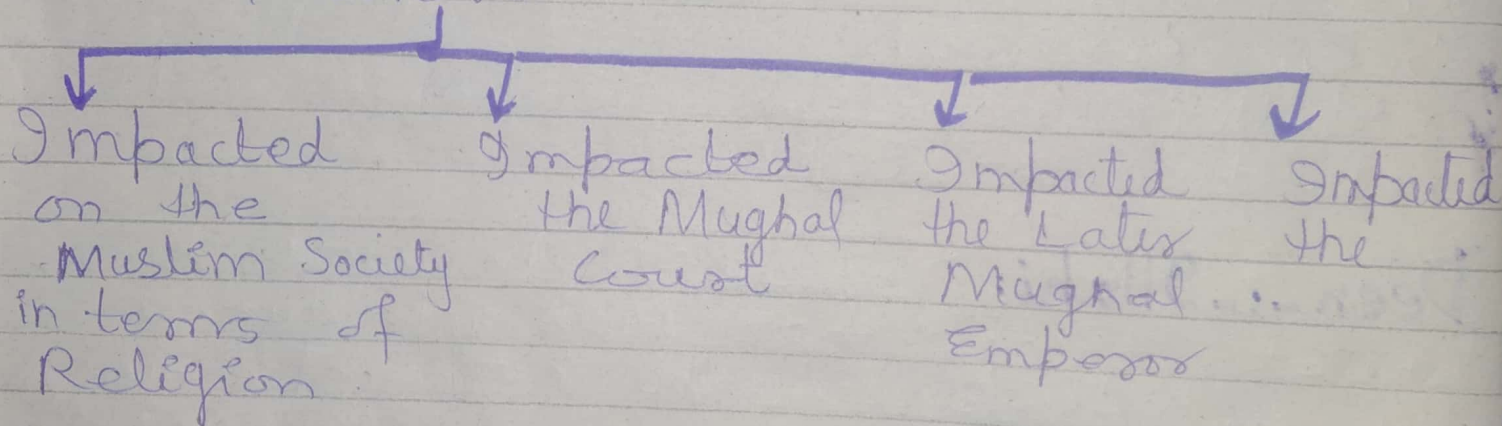 Impacted
on the
Muslim Society
in terms of
Religion
Impacted
the Mughal
Court
Impacted
the Later
Mughal
Emperor
Impacted
the